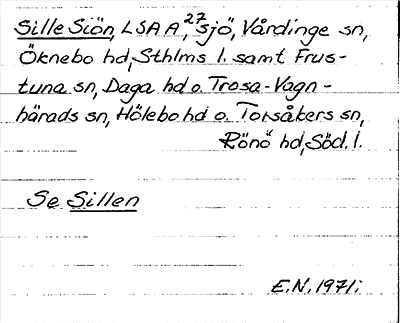 Sille Siön, LSA A, 27 sjö, Vårdinge sn,
Öknebo hd, Sthlms l. samt Frus-
tuna sn, Daga hd o. Trosa-Vagn-
härads sn, Hölebo hd o. Torsåkers sn,
Rönö hd, Söd. l.
Se Sillen
E.N. 1971;